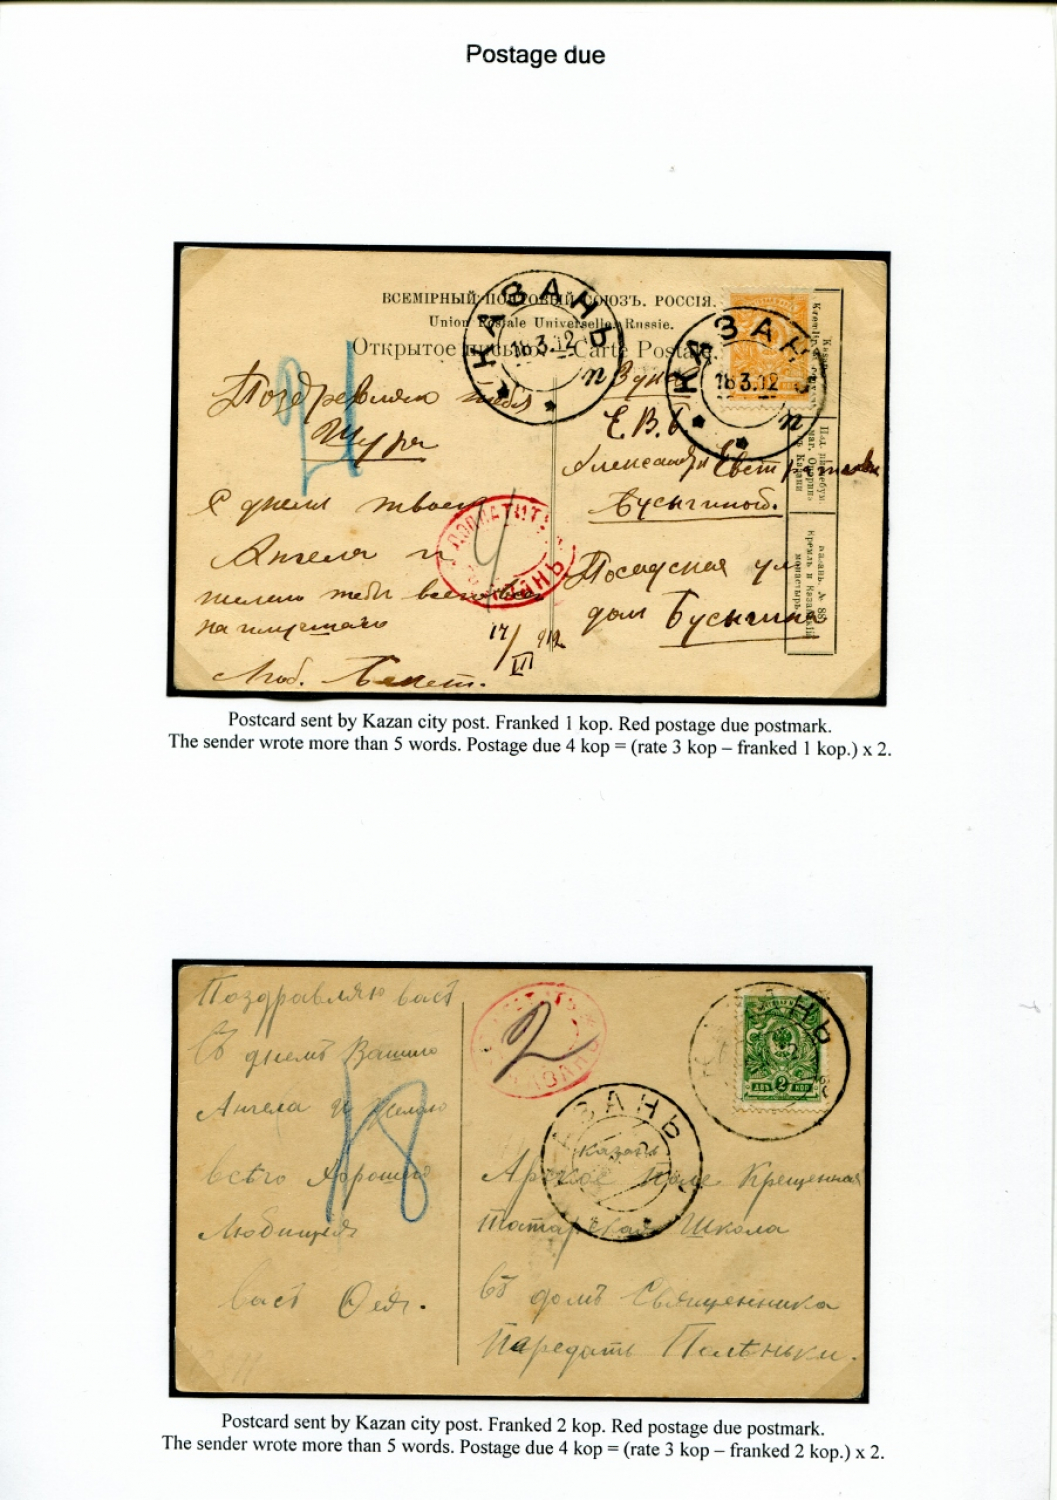 Postage due
ВСЕМІРНЫЙ ПОЧТОВЫЙ СОЮЗЪ. РОССІЯ.
Union Postale Universelle. Russie.
Открытое письмо — Carte Postale.
КАЗАНЬ
18.3.12
КАЗАНЬ
18.3.12
Поздревляю тебя
Шура
С днемъ твоего
Ангела и
желаю тебе всего
наилучшаго
17/III 912
Е.В.Б.
Бусыгиной.
Посадская ул
домъ Бусыгина
ДОПЛАТИТЬ
КАЗАНЬ
4
Postcard sent by Kazan city post. Franked 1 kop. Red postage due postmark.
The sender wrote more than 5 words. Postage due 4 kop = (rate 3 kop – franked 1 kop.) x 2.
Поздравляю васъ
Съ днемъ Вашимъ
Ангела и желаю
всего хорошаго
Любищяя
васъ Оля.
2
КАЗАНЬ
ДВѢ 2 КОП
Казань
Арское поле Крещенная
Татарская Школа
въ домъ Священника
Передать Поленьки.
Postcard sent by Kazan city post. Franked 2 kop. Red postage due postmark.
The sender wrote more than 5 words. Postage due 4 kop = (rate 3 kop – franked 2 kop.) x 2.